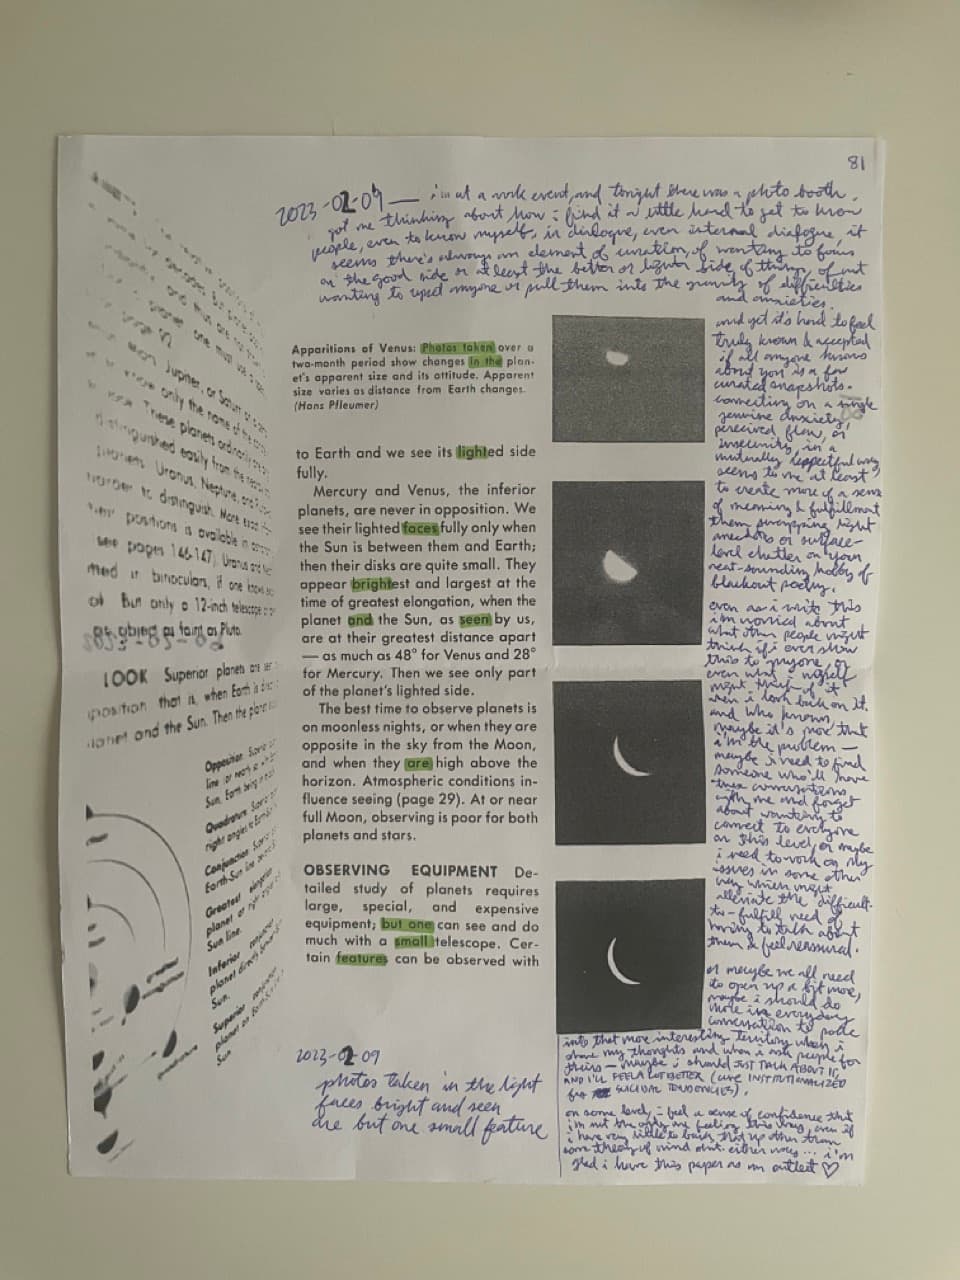 81
2023-02-09 — i'm at a work event, and tonight there was a photo booth.
got me thinking about how i find it a little hard to get to know
people, even to know myself, in dialogue, even internal dialogue, it
seems there's always an element of curation, of wanting to focus
on the good side or at least the better or lighter side of things, of not
wanting to upset anyone or pull them into the gravity of difficulties
and anxieties.
and yet it's hard to feel
truly known & accepted
if all anyone knows
about you is a few
curated snapshots.
connecting on a single
genuine anxiety,
perceived flaw, or
insecurity, in a
mutually respectful way
seems to me at least
to create more of a sense
of meaning & fulfillment
than swapping light
anecdotes or surface-
level chatter on your
neat-sounding hobby of
blackout poetry.
even as i write this
i'm worried about
what other people might
think if i ever show
this to anyone, or
even what i myself
might think of it
when i look back on it.
and who knows,
maybe it's more that
i'm the problem —
maybe i need to find
someone who'll have
these conversations
with me and forget
about wanting to
connect to everyone
on this level, or maybe
i need to work on my
issues in some other
way which might
alleviate the difficult-
to-fulfill need of
having to talk about
them & feel reassured.
or maybe we all need
to open up a bit more,
maybe i should do
more in everyday
conversation to
into that more interesting territory when i
share my thoughts and when i ask people for
theirs — maybe i should JUST TALK ABOUT IT,
AND I'LL FEEL A LOT BETTER (CUE INSTITUTIONALIZED
SUICIDAL TENDENCIES).
on some level, i feel a sense of confidence that
i'm not the only one feeling this way, even if
i have very little to back that up other than
some theory of mind either way... i'm
glad i have this paper as an outlet ♡
Apparitions of Venus: Photos taken over a
two-month period show changes in the plan-
et's apparent size and its attitude. Apparent
size varies as distance from Earth changes.
(Hans Pfleumer)
to Earth and we see its lighted side
fully.
Mercury and Venus, the inferior
planets, are never in opposition. We
see their lighted faces fully only when
the Sun is between them and Earth;
then their disks are quite small. They
appear brightest and largest at the
time of greatest elongation, when the
planet and the Sun, as seen by us,
are at their greatest distance apart
— as much as 48° for Venus and 28°
for Mercury. Then we see only part
of the planet's lighted side.
The best time to observe planets is
on moonless nights, or when they are
opposite in the sky from the Moon,
and when they are high above the
horizon. Atmospheric conditions in-
fluence seeing (page 29). At or near
full Moon, observing is poor for both
planets and stars.
OBSERVING EQUIPMENT De-
tailed study of planets requires
large, special, and expensive
equipment; but one can see and do
much with a small telescope. Cer-
tain features can be observed with
2023-02-09
photos taken in the light
faces bright and seen
are but one small feature
planet one must
Jupiter, or Saturn
only the name of the
These planets ordinarily
distinguished easily from the
planets. Uranus, Neptune, and
harder to distinguish. More
their positions is available in
see pages 146-147). Uranus
in binoculars, if one knows
But only a 12-inch telescope
as faint as Pluto.
LOOK Superior planets are
that is, when Earth is
planet and the Sun. Then the planet
Opposition:
Sun, Earth being
Quadrature:
right angles to Earth-Sun
Conjunction:
Earth-Sun line
Greatest elongation
planet at right angles
Sun line.
Inferior conjunction
planet directly
Sun.
Superior conjunction
planet on Earth-Sun
Sun